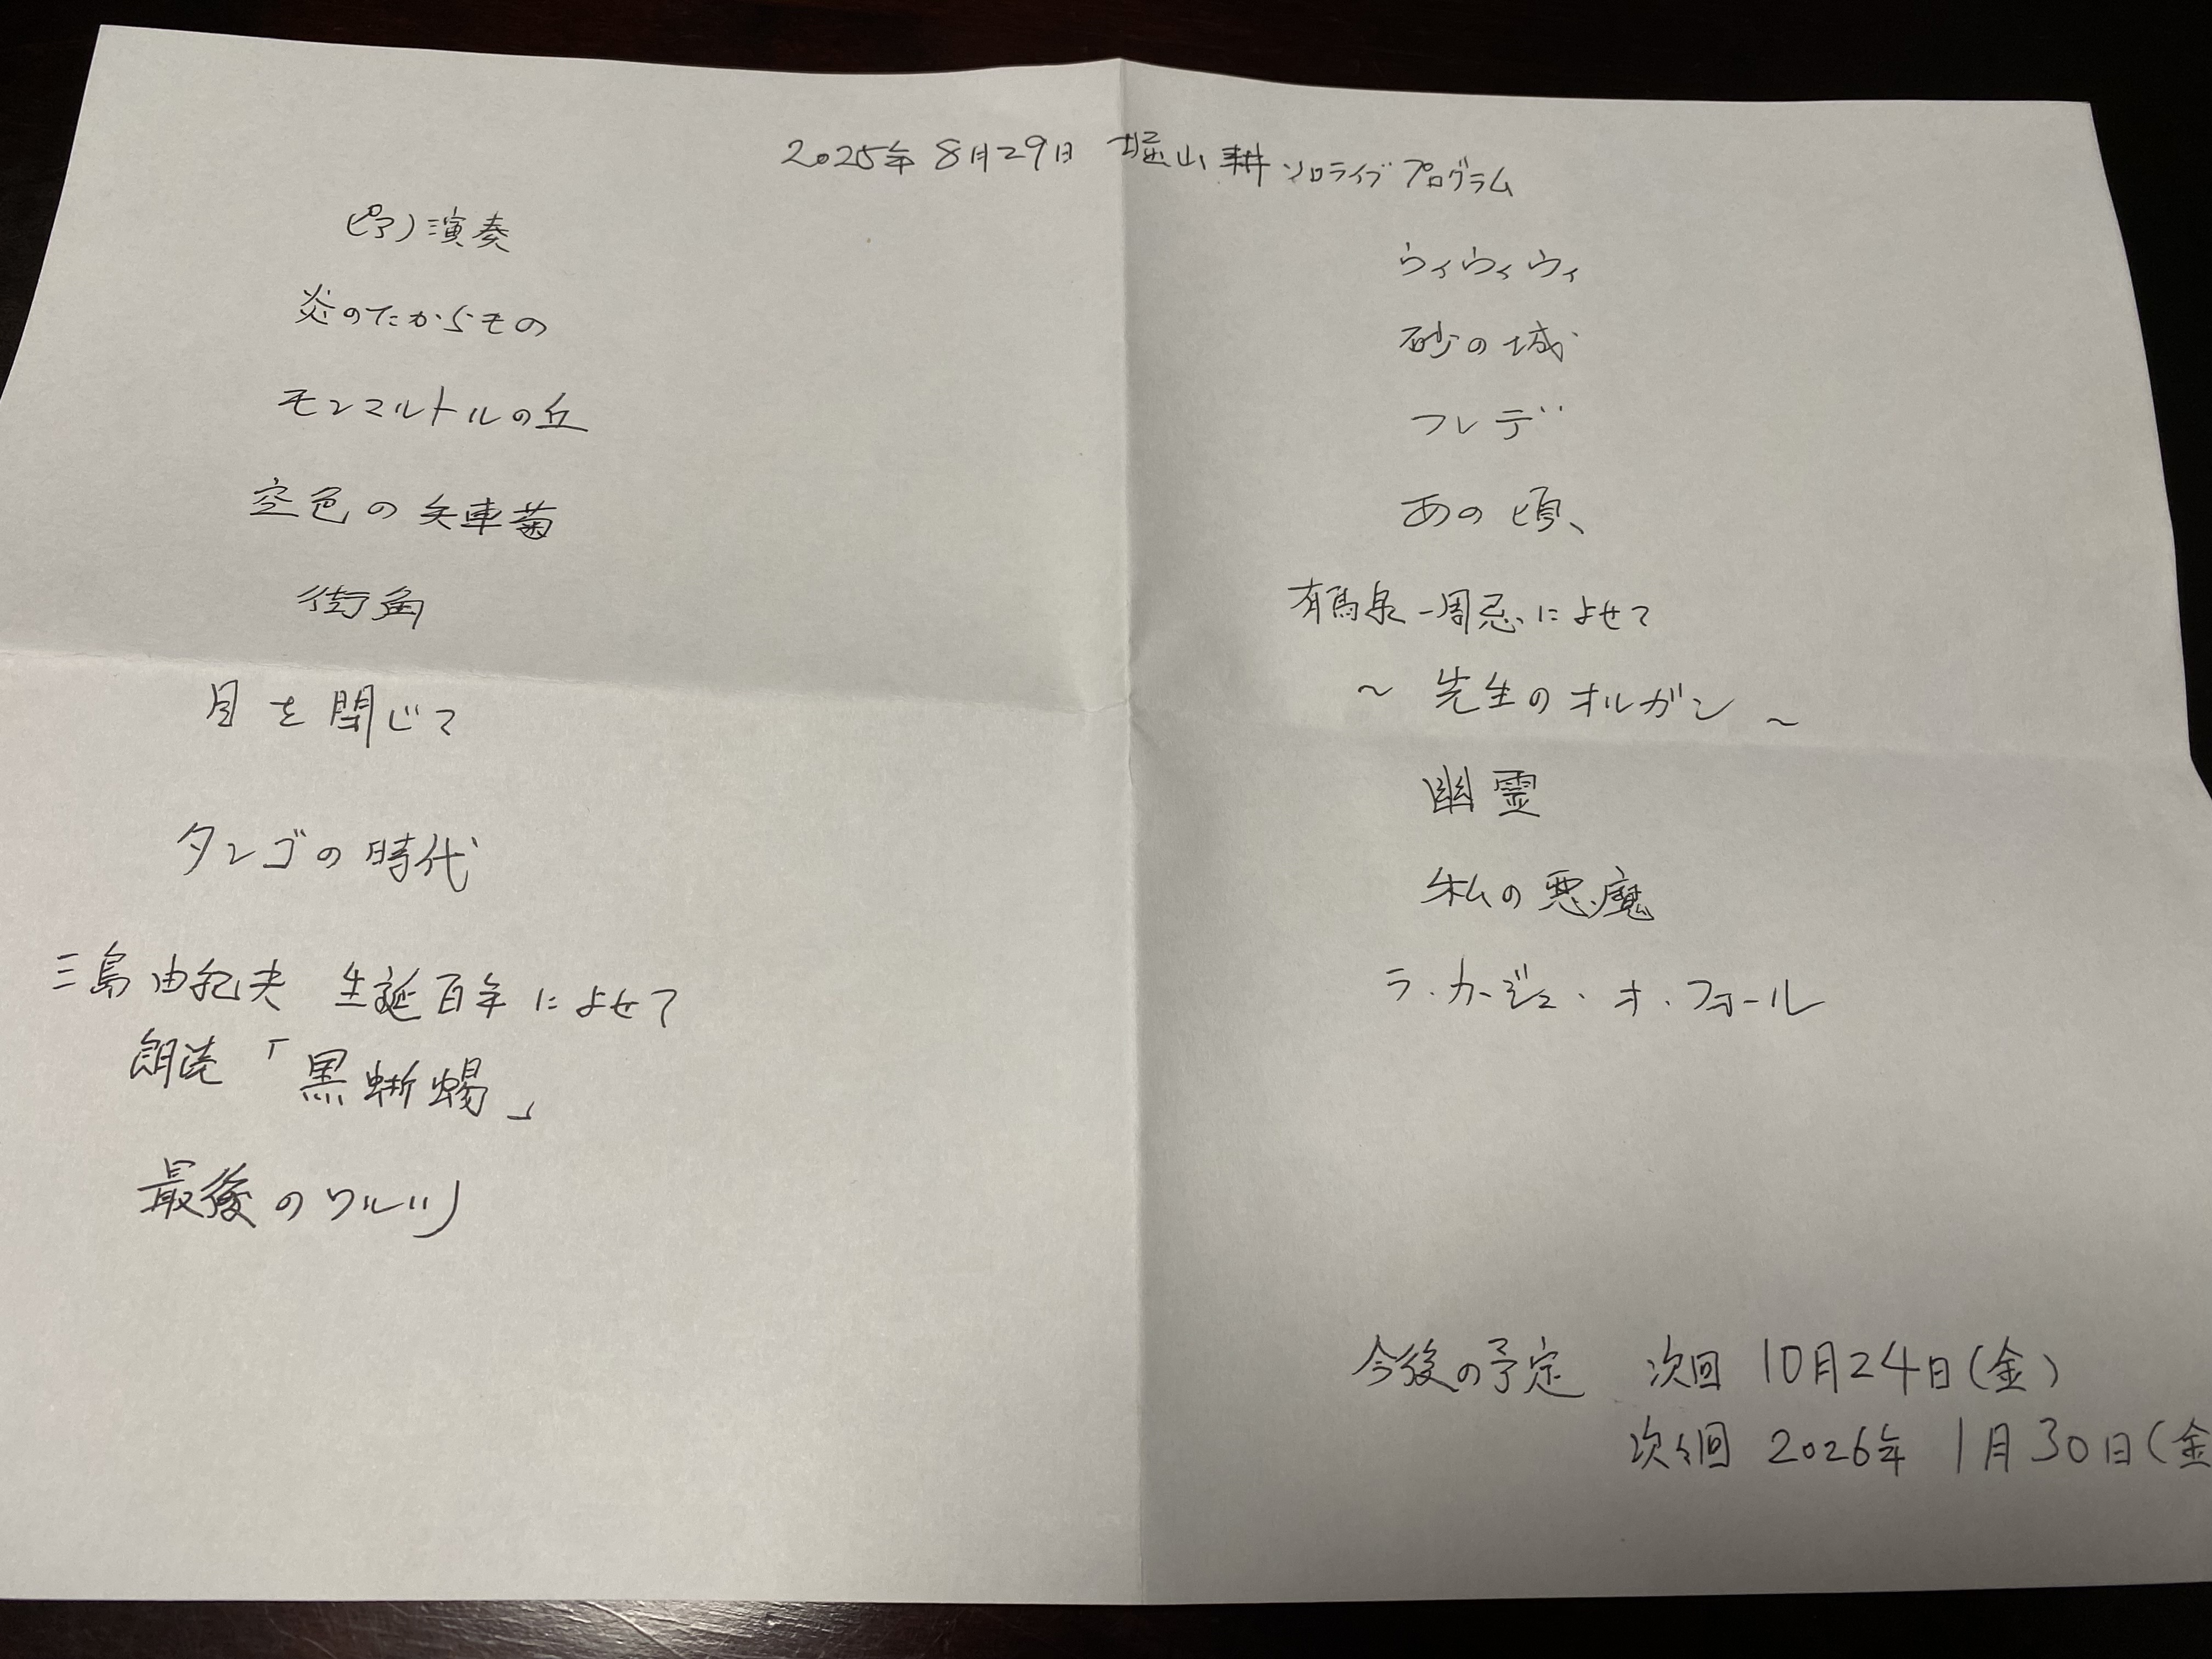 2025年8月29日 堀山耕ソロライブプログラム
ピアノ演奏
炎のたからもの
モンマルトルの丘
空色の矢車菊
街角
目を閉じて
タンゴの時代
三島由紀夫 生誕百年によせて
朗読「黒蜥蜴」
最後のワルツ
ウィウィウィ
砂の城
フレデ
あの頃、
有馬泉一周忌によせて
～先生のオルガン～
幽霊
私の悪魔
ラ・カージュ・オ・フォール
今後の予定 次回 10月24日(金)
次々回 2026年1月30日(金